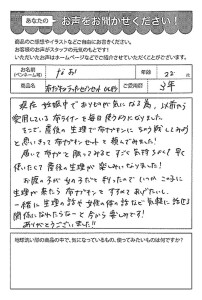 あなたの
お声をお聞かせください!
商品のご感想やイラストなどご自由にお書きください。
お客様のお声がスタッフの元気のもとです!
いただいたお声はホームページなどでご紹介させていただくことがございます。
お名前
(ペンネーム可)
なお!
年齢
22
才
商品名
布ナプキン
セット
ご愛用歴
3年
現在 妊娠中で おりものが 気になる為、以前から
愛用している 布ライナーを毎日使うようになりました。
そこで、産後の生理で布ナプキンに
思いきって 布ナプキンセットを 購入してみました!
届いて布ナプを 触ってみると すごく気持ちがよく 早く
使いたくて 産後の生理が 楽しみになりました!
お腹の子が 女の子だと 判ったので いつか この子に
生理が来たら 布ナプキンを すすめてあげたいし、
一緒に 生理の話や 女性の体の話など 気軽に 話せる
関係になれたらな~と 今から 楽しみです!
ありがとうございました!!
地球洗い隊の商品の中で、気になっているもの、使ってみたいものは何ですか?